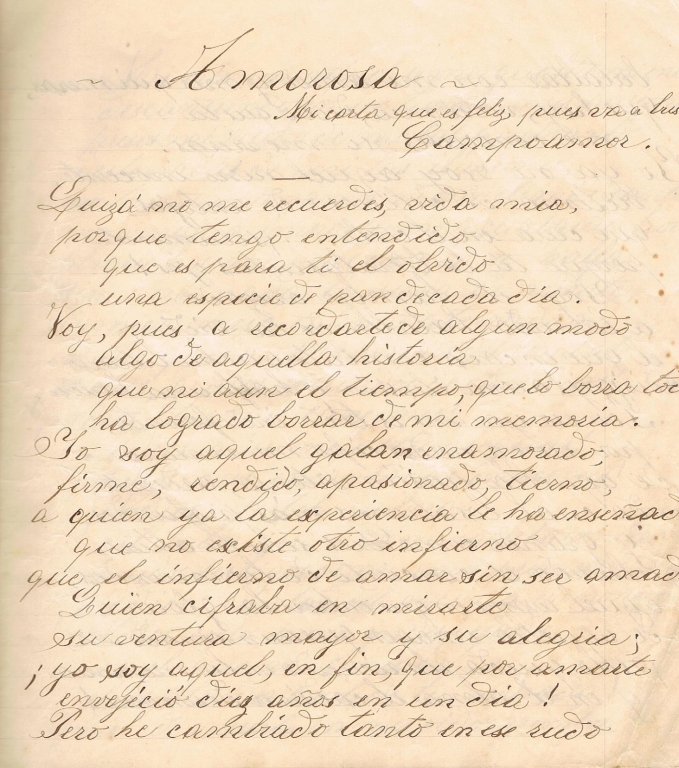 Amorosa
Mi carta que es feliz, pues va a bus
Campoamor.
Quizá no me recuerdes, vida mia,
porque tengo entendido
que es para ti el olvido
una especie de pan de cada dia.
Voy, pues, a recordarte de algun modo
algo de aquella historia
que ni aun el tiempo, que lo borra tod
ha logrado borrar de mi memoria.
Yo soy aquel galan enamorado,
firme, rendido, apasionado, tierno,
a quien ya la experiencia le ha enseñad
que no existe otro infierno
que el infierno de amar sin ser amad
Quien cifraba en mirarte
su ventura mayor y su alegria;
¡yo soy aquel, en fin, que por amarte
envejeció diez años en un dia!
Pero he cambiado tanto en ese rudo